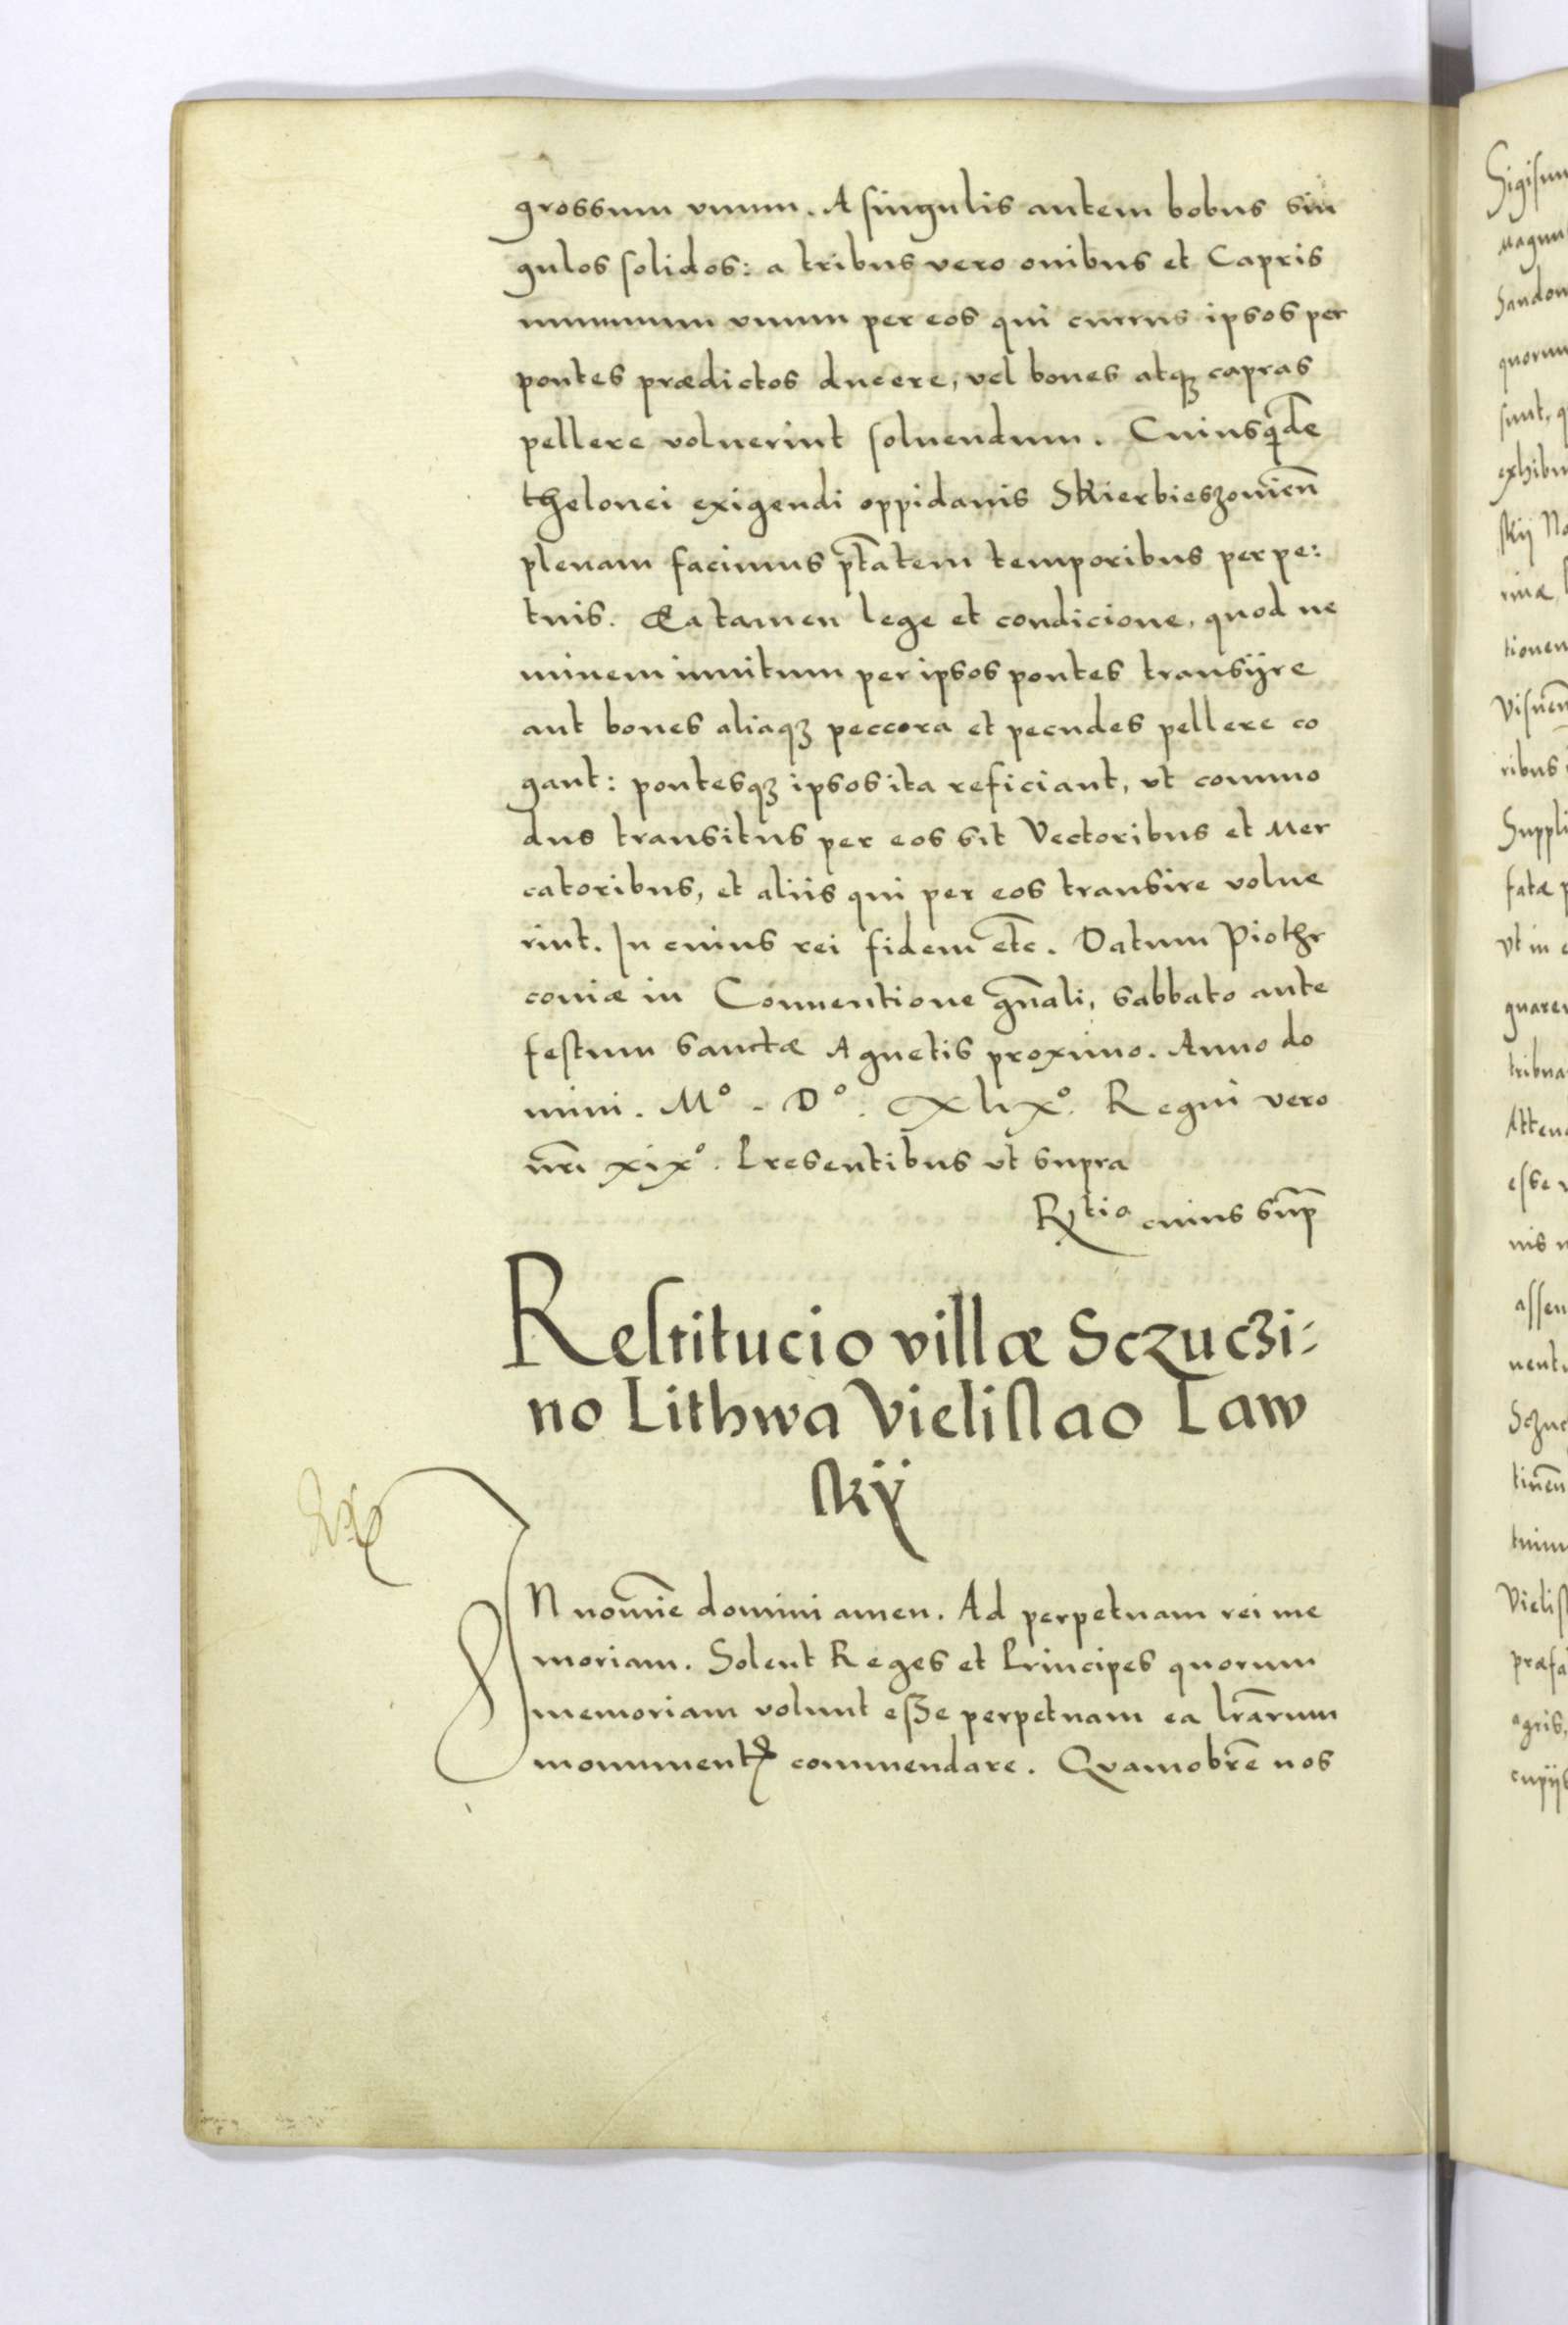 grossum vnum. A singulis autem bobus sin
gulos solidos: a tribus vero ouibus et Capris
nummum vnum per eos qui currus ipsos per
pontes prædictos ducere, vel boues atqꝫ capras
pellere voluerint soluendum. Cuiusqͥdē
thelonei exigendi oppidanis Skierbieszouień
plenam facimus ptātem temporibus perpe:
tuis. Ea tamen lege et condicione, quod ne
minem inuitum per ipsos pontes transijre
aut boues aliaqꝫ peccora et pecudes pellere co
gant: pontesqꝫ ipsos ita reficiant, vt commo
dus transitus per eos sit Vectoribus et Mer
catoribus, et aliis qui per eos transire volue
rint. In cuius rei fidem etc̄. Datum Piothr
coniæ in Conuentione gn̄ali, sabbato ante
festum sanctæ Agnetis proximo. Anno do
mini. Mº. Dº. xlixº. Regni vero
nr̄i xixº. Presentibus vt supra
Rtio cuius sup̄
Restitucio villæ Sczuczi-
no Lithwa Vielislao Law
skÿ
IN nomīe domini amen. Ad perpetuam rei me
moriam. Solent Reges et Principes quorum
memoriam volunt esse perpetuam ea lr̄arum
monumentꝭ commendare. Quamobrē nos
Sandom
quorum
sunt, q
exhibu
skij No
tionem
ribus
Suppli
fatæ p
vt in e
tribua
esse v
nis n
assen
Sczuc
Vielis
præfa
agris,